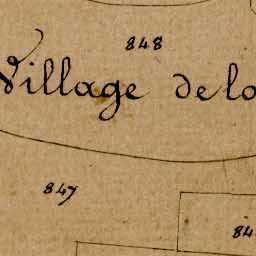 848
Village de la
847
84